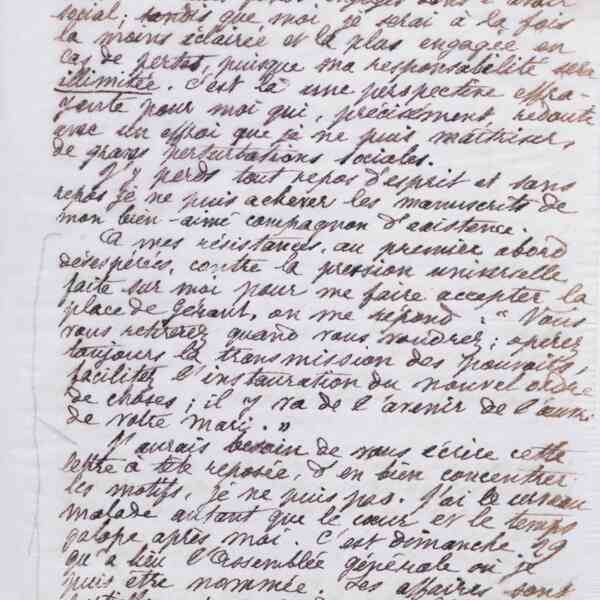 social; tandis que moi je serai à la fois
la moins éclairée et la plus engagée en
cas de pertes, puisque ma responsabilité sera
illimitée. C'est là une perspective effra-
yante pour moi qui, précisément, redoute
avec un effroi que je ne puis maîtriser,
de graves perturbations sociales.
J'y perds tout repos d'esprit et sans
repos je ne puis achever les manuscrits de
mon bien-aimé compagnon d'existence.
A mes résistances, au premier abord
désespérées, contre la pression universelle
faite sur moi pour me faire accepter la
place de Gérant, on me répond: "Vous
vous retirerez quand vous voudrez; opérez
toujours la transmission des pouvoirs,
facilitez l'instauration du nouvel ordre
de choses; il y va de l'avenir de l'œuvre
de votre mari."
J'aurais besoin de vous écrire cette
lettre à tête reposée, d'en bien concentrer
les motifs, je ne puis pas. J'ai le cerveau
malade autant que le cœur et le temps
galope après moi. C'est dimanche 29
qu'a lieu l'Assemblée générale où je
puis être nommée. Les affaires sont